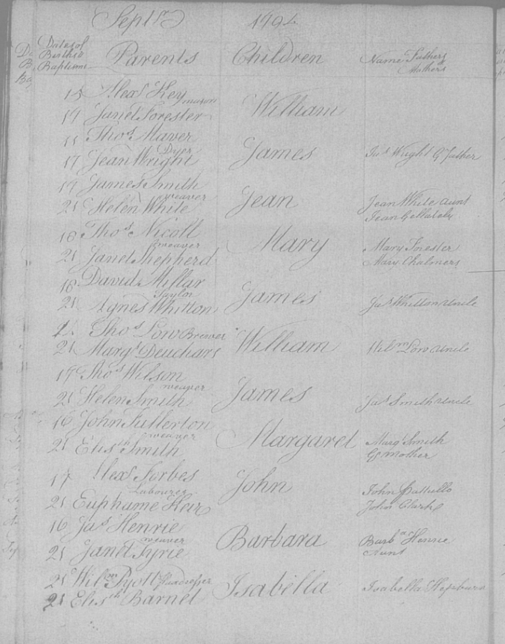 Septr 1794
Dates of Births & Baptisms Parents Children Name Fathers & Mothers
15 Alexr Key mason
19 Janet Forester William
Thos Maver Dyer
17 Jean Wright James Jas Wright G. father
17 James Smith weaver
21 Helen White Jean Jean White Aunt
Jean Gellatly
18 Thos Nicoll weaver
21 Janet Shepherd Mary Mary Forester
Mary Chalmers
16 David Millar Taylor
21 Agnes Whitton James Jas Whitton Uncle
Thos Low Brewer
21 Margt Deuchars William Willm Low Uncle
19 Thos Wilson weaver
21 Helen Smith James Jas Smith Uncle
16 John Fullerton weaver
21 Elisth Smith Margaret Margt Smith
Gr Mother
17 Alexr Forbes Labourer
21 Euphame Kerr John John Pattullo
John Clark
16 Jas Henrie weaver
21 Janet Pyrie Barbara Barbra Henrie
Aunt
21 Willm Pyott
21 Elisth Barnet Isabella Isabella Hepburn